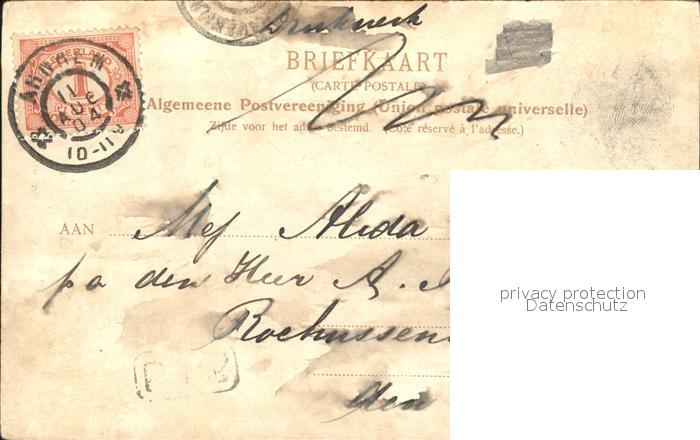 Drukwerk
BRIEFKAART
(CARTE POSTALE)
Algemeene Postvereeniging (Union postale universelle)
Zijde voor het adres bestemd. (Côté réservé à l'adresse.)
NEDERLAND
1
ARNHEM
11 AUG 04
10-11V
AAN Mej Alida
pa den Heer A.
Rochussen
den
privacy protection
Datenschutz